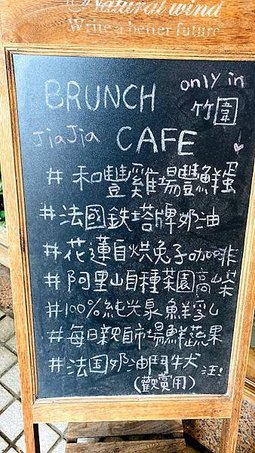 Natural wind
Write a better future
BRUNCH only in
竹圍
JiaJia CAFE
#和豐雞場豐鮮蛋
#法國鉄塔牌奶油
#花蓮自烘兔子咖啡
#阿里山自種茶園高山茶
#100%純米泉鮮乳
#每日親市場鮮蔬果
#法国奶油鬥牛犬 汪!
(觀賞用)